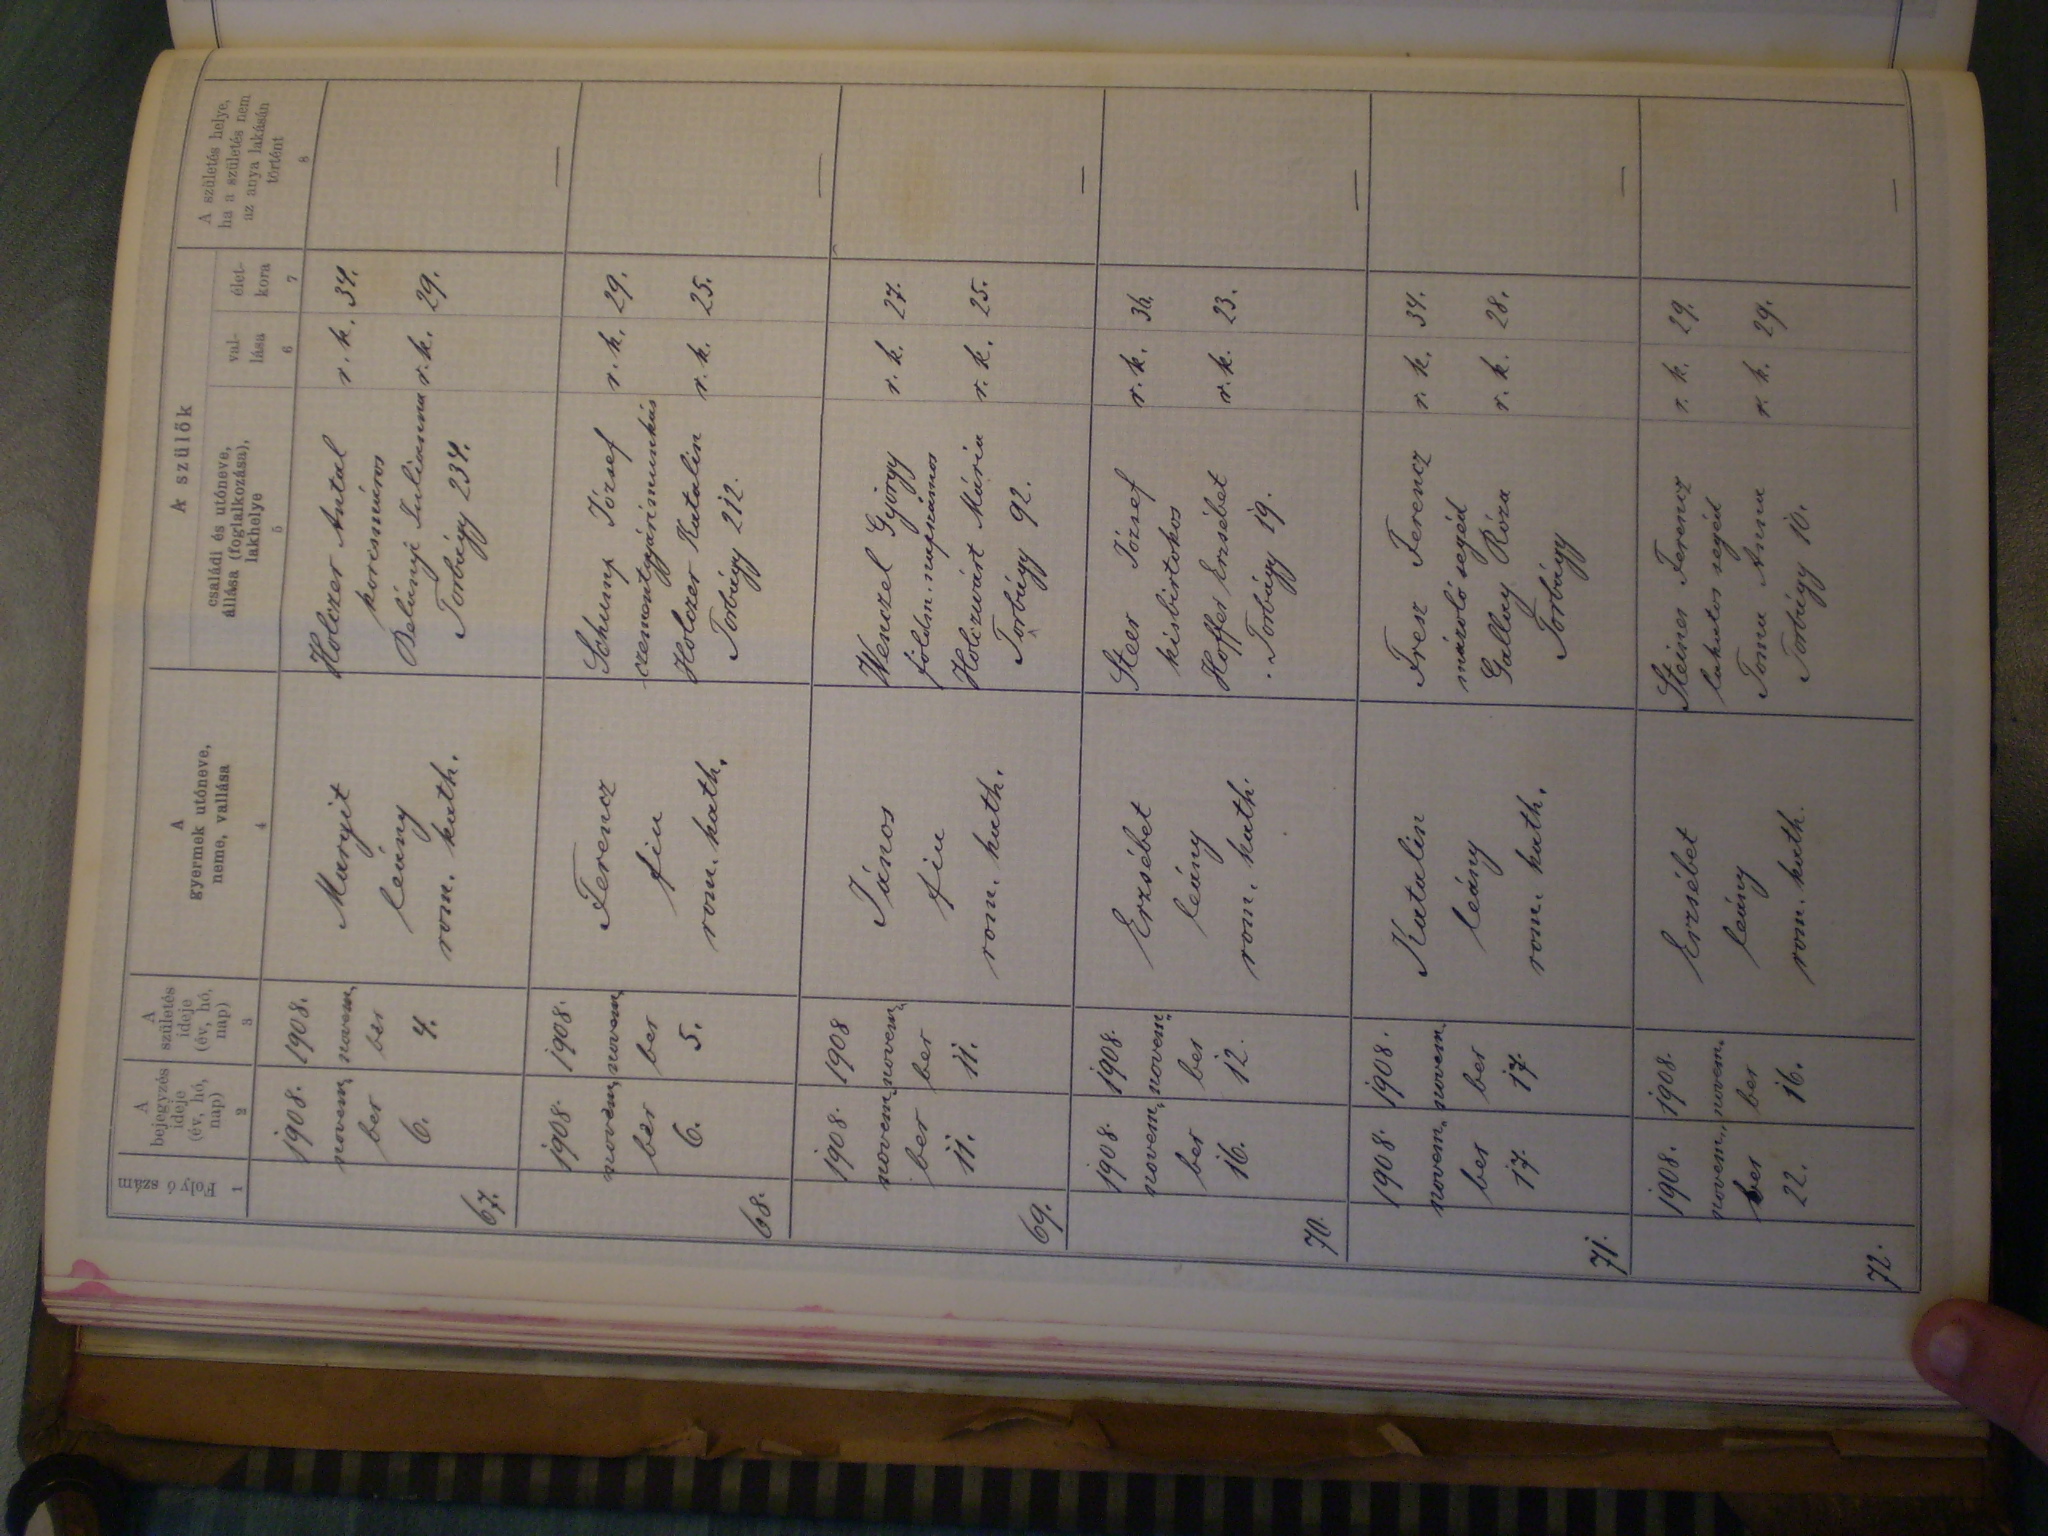 Folyó szám
1
A
bejegyzés
ideje
(év, hó,
nap)
2
A
születés
ideje
(év, hó,
nap)
3
A
gyermek utóneve,
neme, vallása
4
A szülők
családi és utóneve,
állása (foglalkozása),
lakhelye
5
val-
lása
6
élet-
kora
7
A születés helye,
ha a születés nem
az anya lakásán
történt
8
67.
1908.
novem,
ber
6.
1908.
novem,
ber
4.
Margit
leány
rom. kath.
Holczer Antal r. k. 34.
korcsmáros
Belányi Julianna r. k. 29.
Torbágy 234.
—
68.
1908.
novem,
ber
6.
1908.
novem,
ber
5.
Ferencz
fiu
rom. kath.
Schump József r. k. 29.
czementgyári munkás
Holczer Katalin r. k. 25.
Torbágy 212.
—
69.
1908.
novem,
ber
11.
1908
novem,
ber
11.
János
fiu
rom. kath.
Wenczel György r. k. 27.
földm. napszámos
Holczwárt Mária r. k. 25.
Torbágy 92.
—
70.
1908.
novem,
ber
16.
1908.
novem,
ber
12.
Erzsébet
leány
rom. kath.
Steer József r. k. 36.
kisbirtokos
Hoffer Erzsébet r. k. 23.
Torbágy 19.
—
71.
1908.
novem,
ber
17.
1908.
novem.
ber
17.
Katalin
leány
rom. kath.
Fresz Ferencz r. k. 34.
mázoló segéd
Gallay Róza r. k. 28.
Torbágy
—
72.
1908.
novem,
ber
22.
1908.
novem.
ber
16.
Erzsébet
leány
rom. kath.
Steiner Ferencz r. k. 29.
lakatos segéd
Toma Anna r. k. 29.
Torbágy 10.
—